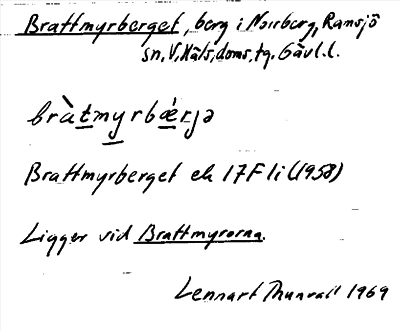 Brattmyrberget, berg i Norrberg, Ramsjö
sn, V. Häls, doms, tg. Gävl. l.
bràtmyrbǽrjə
Brattmyrberget ek 17F li (1958)
Ligger vid Brattmyrorna.
Lennart Thunvall 1969